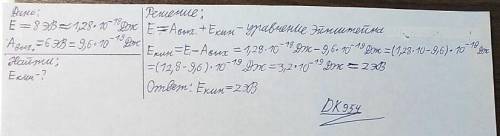 Дано:
E=8ЭВ=1,28·10⁻¹⁸Дж
Aвых.=6ЭВ=9,6·10⁻¹⁹Дж
Найти:
Eкин-?
Решение:
E=Aвых+Eкин-уравнение Эйнштейна
Eкин=E-Aвых=1,28·10⁻¹⁸Дж-9,6·10⁻¹⁹Дж=(1,28·10-9,6)·10⁻¹⁹Дж
=(12,8-9,6)·10⁻¹⁹Дж=3,2·10⁻¹⁹Дж=2ЭВ
Ответ: Eкин=2ЭВ
DK954